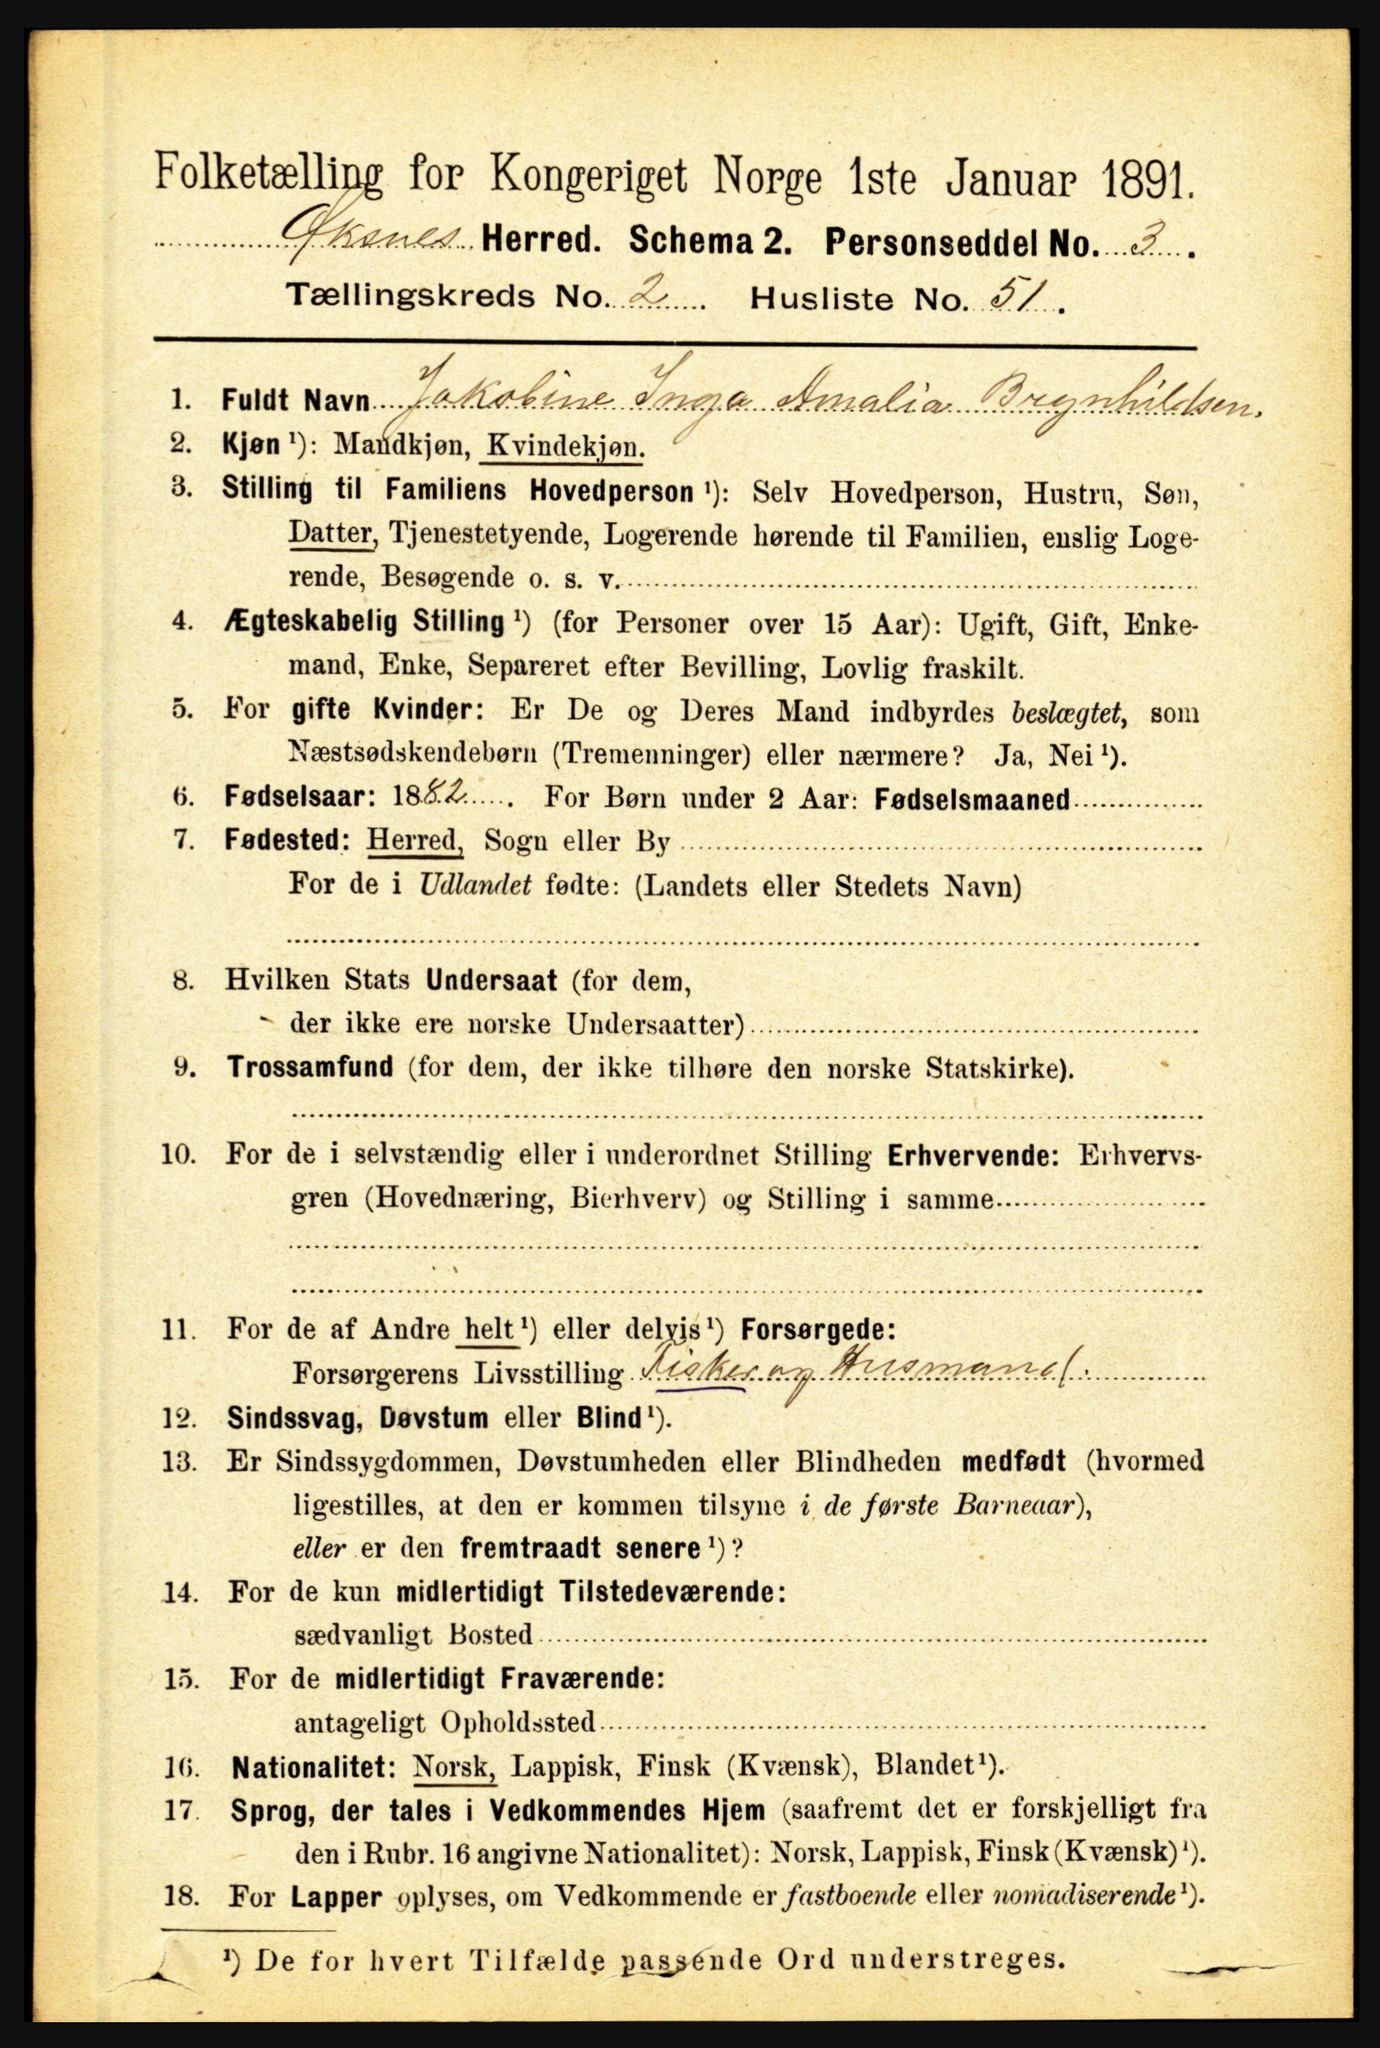 Folketælling for Kongeriget Norge 1ste Januar 1891.
Øksnes Herred. Schema 2. Personseddel No. 3.
Tællingskreds No. 2. Husliste No. 51.
1. Fuldt Navn Jakobine Inga Amalia Brynhildsen.
2. Kjøn ¹): Mandkjøn, Kvindekjøn.
3. Stilling til Familiens Hovedperson ¹): Selv Hovedperson, Hustru, Søn,
Datter, Tjenestetyende, Logerende hørende til Familien, enslig Loge-
rende, Besøgende o. s. v.
4. Ægteskabelig Stilling ¹) (for Personer over 15 Aar): Ugift, Gift, Enke-
mand, Enke, Separeret efter Bevilling, Lovlig fraskilt.
5. For gifte Kvinder: Er De og Deres Mand indbyrdes beslægtet, som
Næstsødskendebørn (Tremenninger) eller nærmere? Ja, Nei ¹).
6. Fødselsaar: 1882. For Børn under 2 Aar: Fødselsmaaned
7. Fødested: Herred, Sogn eller By
For de i Udlandet fødte: (Landets eller Stedets Navn)
8. Hvilken Stats Undersaat (for dem,
der ikke ere norske Undersaatter)
9. Trossamfund (for dem, der ikke tilhøre den norske Statskirke).
10. For de i selvstændig eller i underordnet Stilling Erhvervende: Erhvervs-
gren (Hovednæring, Bierhverv) og Stilling i samme
11. For de af Andre helt ¹) eller delvis ¹) Forsørgede:
Forsørgerens Livsstilling Fisker og Husmand.
12. Sindssvag, Døvstum eller Blind ¹).
13. Er Sindssygdommen, Døvstumheden eller Blindheden medfødt (hvormed
ligestilles, at den er kommen tilsyne i de første Barneaar),
eller er den fremtraadt senere ¹)?
14. For de kun midlertidigt Tilstedeværende:
sædvanligt Bosted
15. For de midlertidigt Fraværende:
antageligt Opholdssted
16. Nationalitet: Norsk, Lappisk, Finsk (Kvænsk), Blandet ¹).
17. Sprog, der tales i Vedkommendes Hjem (saafremt det er forskjelligt fra
den i Rubr. 16 angivne Nationalitet): Norsk, Lappisk, Finsk (Kvænsk) ¹).
18. For Lapper oplyses, om Vedkommende er fastboende eller nomadiserende ¹).
¹) De for hvert Tilfælde passende Ord understreges.